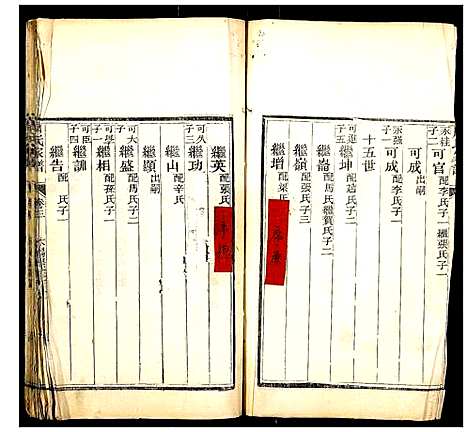 永桂子二 可官 配李氏子一繼張氏子一
可成 出嗣
永強子一 可成 配李氏子二
十五世
可進子五 繼坤 配趙氏子二
繼崙 配馬氏繼賀氏子二
繼嶺 配張氏子三
繼增 配梁氏子一
繼英 配張氏
可久子三 繼功
繼山 配辛氏
繼顯 出嗣
可大子一 繼盛 配馬氏子三
可學子一 繼相 配孫氏子三
可臣子四 繼訓
繼告 配 氏子一
卷三